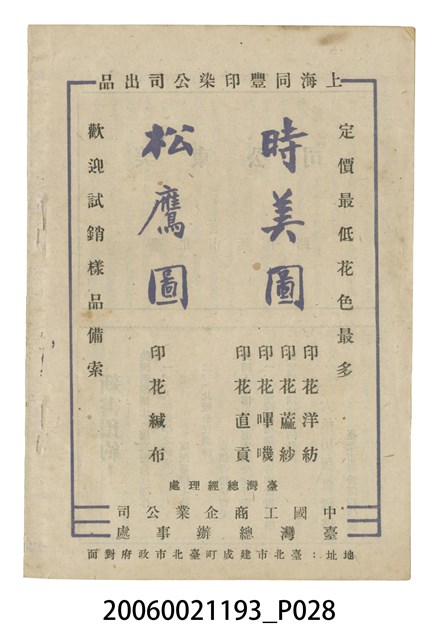 上海同豐印染公司出品
定價最低花色最多
時美圖
印花洋紡
印花蔴紗
印花嗶嘰
印花直貢
松鷹圖
印花緘布
歡迎試銷樣品備索
臺灣總經理處
中國工商企業公司
臺灣總辦事處
地址：臺北市建成町臺北市政府對面
20060021193_P028